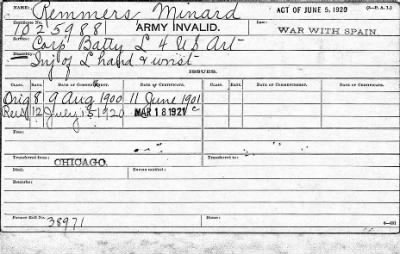 NAME: Remmers Minard ACT OF JUNE 5, 1920 (3-P.A.I.)
Certificate No. 1025988 ARMY INVALID. Law: WAR WITH SPAIN.
Service: Corp Batty L 4 U S Art
Disability: Inj of L hand & wrist
ISSUES.
Class. Rate. Date of Commencement. Date of Certificate. Class. Rate. Date of Commencement. Date of Certificate.
Orig 8 9 Aug 1900 11 June 1901
12 July 1920 MAR 18 1921 c
From:
Transferred from: Transferred to:
CHICAGO.
Died: Bureau notified:
Remarks:
Former Roll No. 38971 Home: